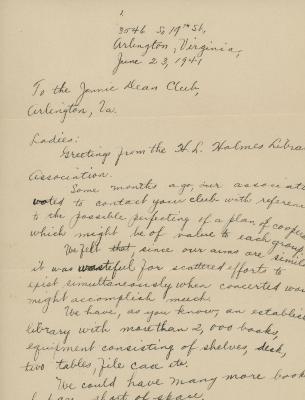 1
3546 So 19th St,
Arlington, Virginia,
June 23, 1941
To the Jennie Dean Club,
Arlington, Va.
Ladies:
Greetings from the H. L. Holmes Libra
Association.
Some months ago, our associati
voted to contact your club with referen
to the possible perfecting of a plan of cooper
which might be of value to each group
We felt that, since our aims are simila
it was wasteful for scattered efforts to
exist simultaneously when concerted wor
might accomplish much.
We have, as you know, an establish
library with more than 2,000 books,
equipment consisting of shelves, desk,
two tables, file case etc.
We could have many more book
short of space